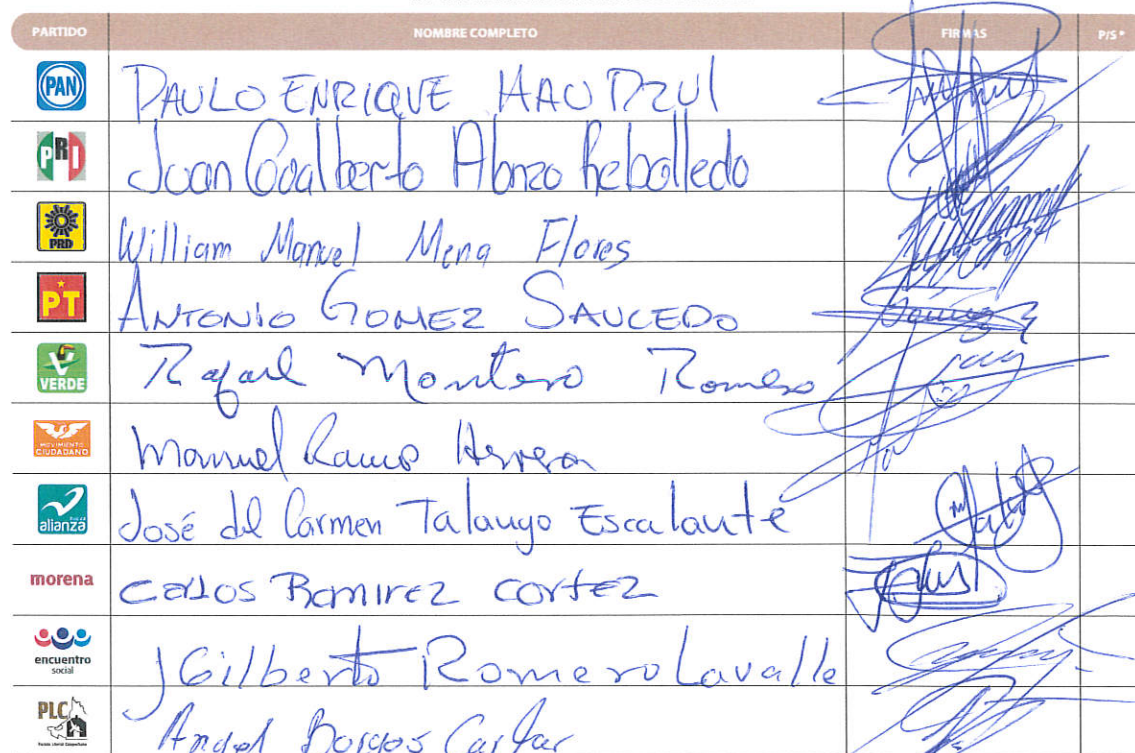 PARTIDO NOMBRE COMPLETO FIRMAS P/S*
PAN PAULO ENRIQUE HAU DZUL
PRI Juan Goalberto Alonzo Rebolledo
PRD William Manuel Mena Flores
PT ANTONIO GOMEZ SAUCEDO
VERDE Rafael Montero Romero
MOVIMIENTO CIUDADANO Manuel Ramos Herrera
alianza José del Carmen Talango Escalante
morena Carlos Ramirez Cortez
encuentro social J Gilberto Romero Lavalle
PLC Angel Borges